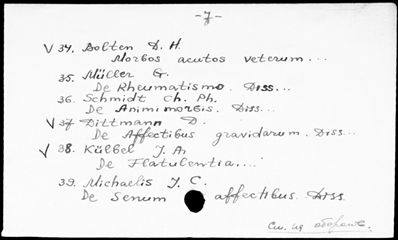 -7-
V 34. Bolten D. H.
Morbos acutos veterum...
35. Müller G.
De Rheumatismo. Diss...
36. Schmidt Ch. Ph.
De Animi morbis. Diss...
V 37 Dittmann D.
De Affectibus gravidarum. Diss...
V 38. Külbel J. A.
De Flatulentia....
39. Michaelis J. C.
De Senum affectibus. Diss
См. на обороте.